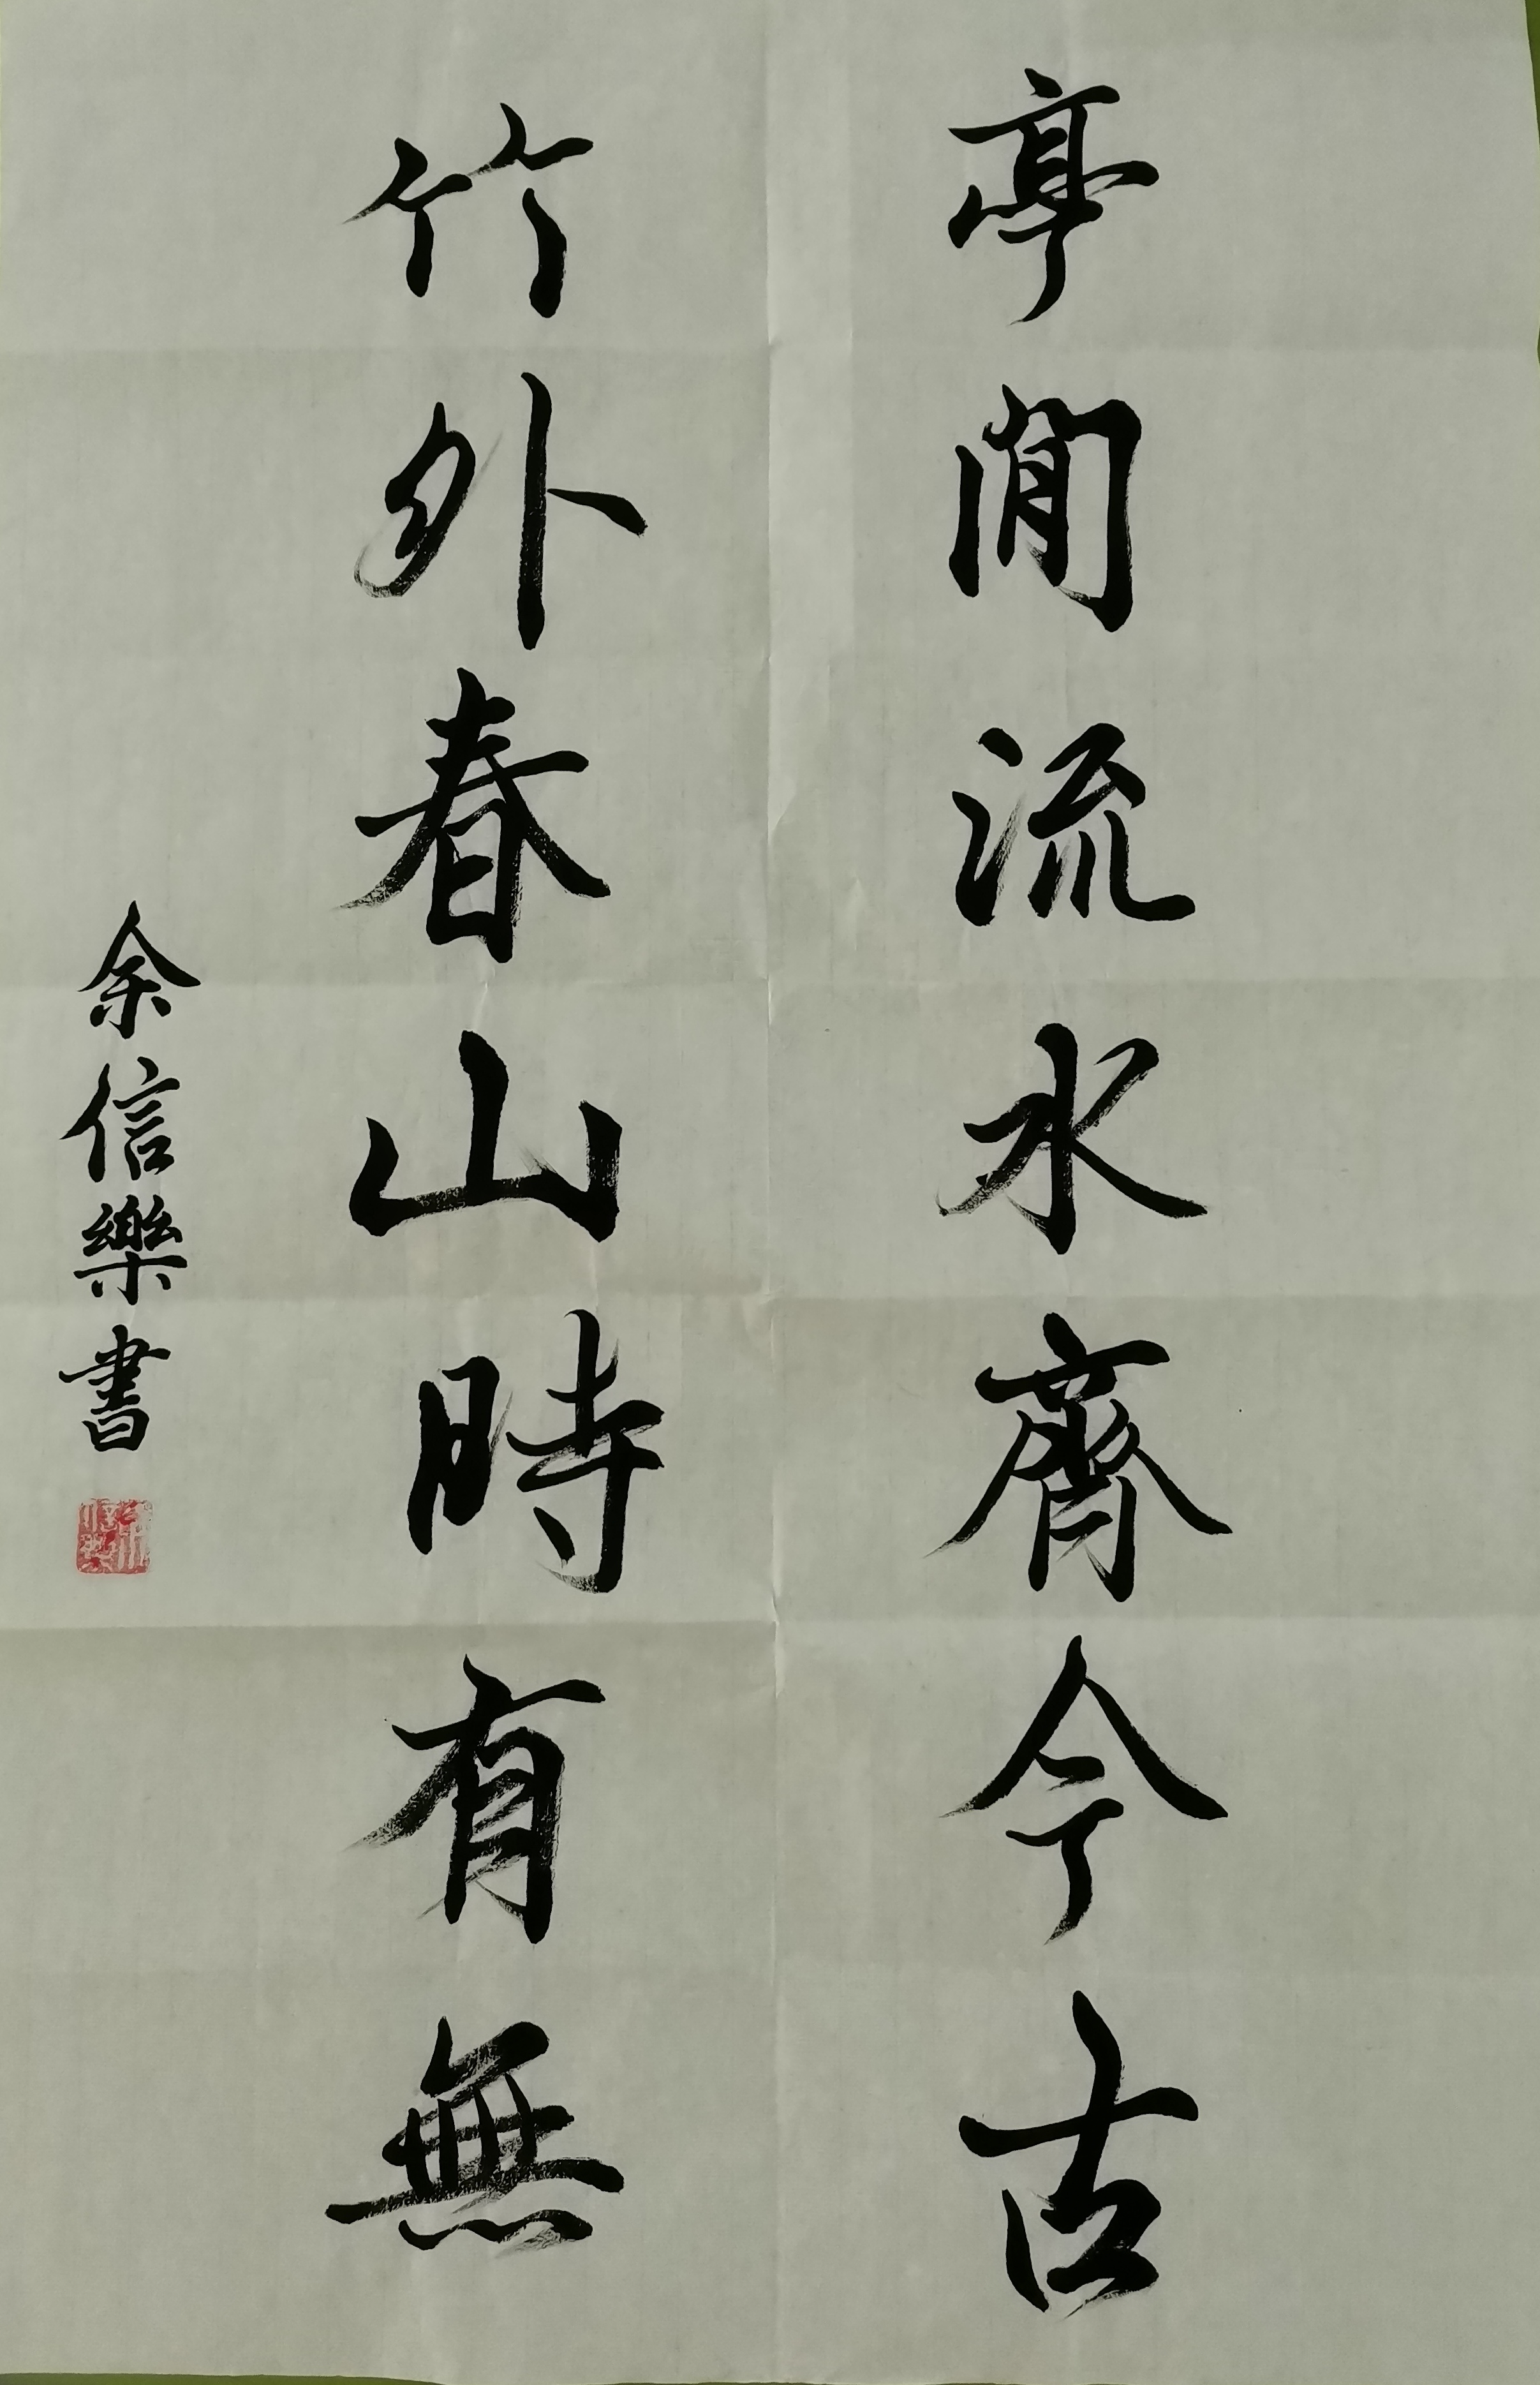 亭閒流水齊今古
竹外春山時有無
余信樂書